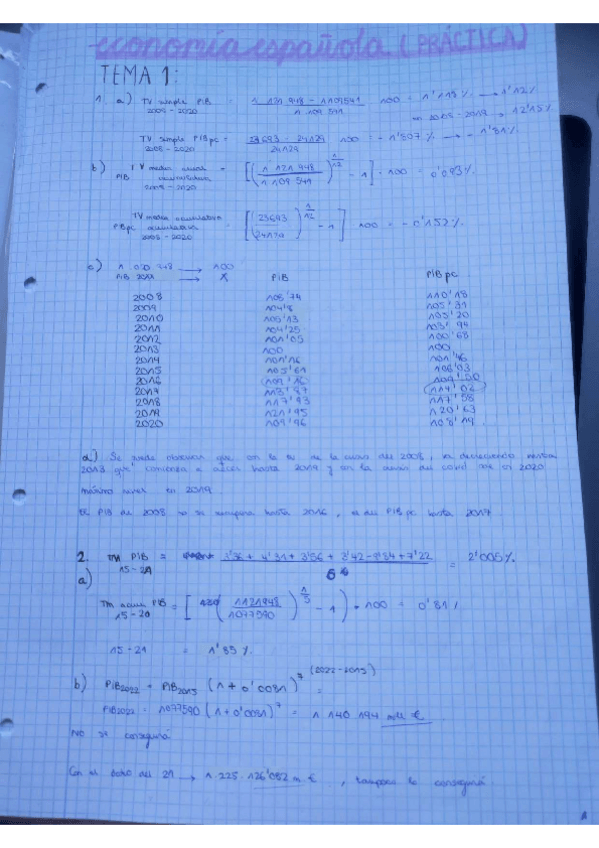 economía española (PRÁCTICA)
TEMA 1:
1. a) TV simple PIB 2008-2020 = 1 121 948 - 1 109 541 / 1 109 541 · 100 = 1'118 % → 1'12 %
en 2008-2019 → 12'15 %
TV simple PIBpc = 2008-2020 23693 - 24129 / 24129 · 100 = - 1'807 % → - 1'81 %
b) TV media anual PIB acumulativa 2008-2020 = [(1 121 948 / 1 109 541)^1/12 - 1] · 100 = 0'093 %.
TV media acumulativa PBpc 2008-2020 = [(23693 / 24129)^1/12 - 1] · 100 = - 0'152 %.
c) 1.020 → 100
PIB → X PIB PIB pc
2008 108'74 110'18
2009 104'8 105'31
2010 105'13 105'20
2011 104'25 103'94
2012 101'05 100'68
2013 100 100
2014 101'16 101'46
2015 105'61 106'03
2016 109'16
2017 113'87 114'02
2018 117'93 117'58
2019 121'95 120'63
2020 109'96 108'19
d) Se puede observar que con la de la crisis del 2008, va decreciendo hasta
2013 que comienza a crecer hasta 2019 y con la crisis del covid cae en 2020
máximo nivel en 2019.
El PIB de 2008 no se recupera hasta 2016, el del PIB pc hasta 2017.
2. TM PIB 15-21 = 3'36 + 4'31 + 3'56 + 3'42 - 9'84 + 7'22 / 6 = 2'005 %.
a)
TM acum PIB 15-20 = [(1121948 / 1077590)^1/5 - 1] · 100 = 0'81 %
15-21 = 1'83 %.
b) PIB2022 = PIB2015 (1 + 0'0081)^7 (2022-2015) =
PIB2022 = 1077590 (1 + 0'0081)^7 = 1 140 194 mill €
No se conseguirá
Con el dato del 21 → 1.225.126'082 m. €, tampoco lo conseguirá